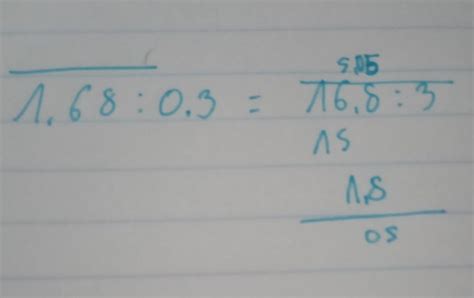 5,
1.68 : 0.3 = 16,8 : 3
15
1,8
05